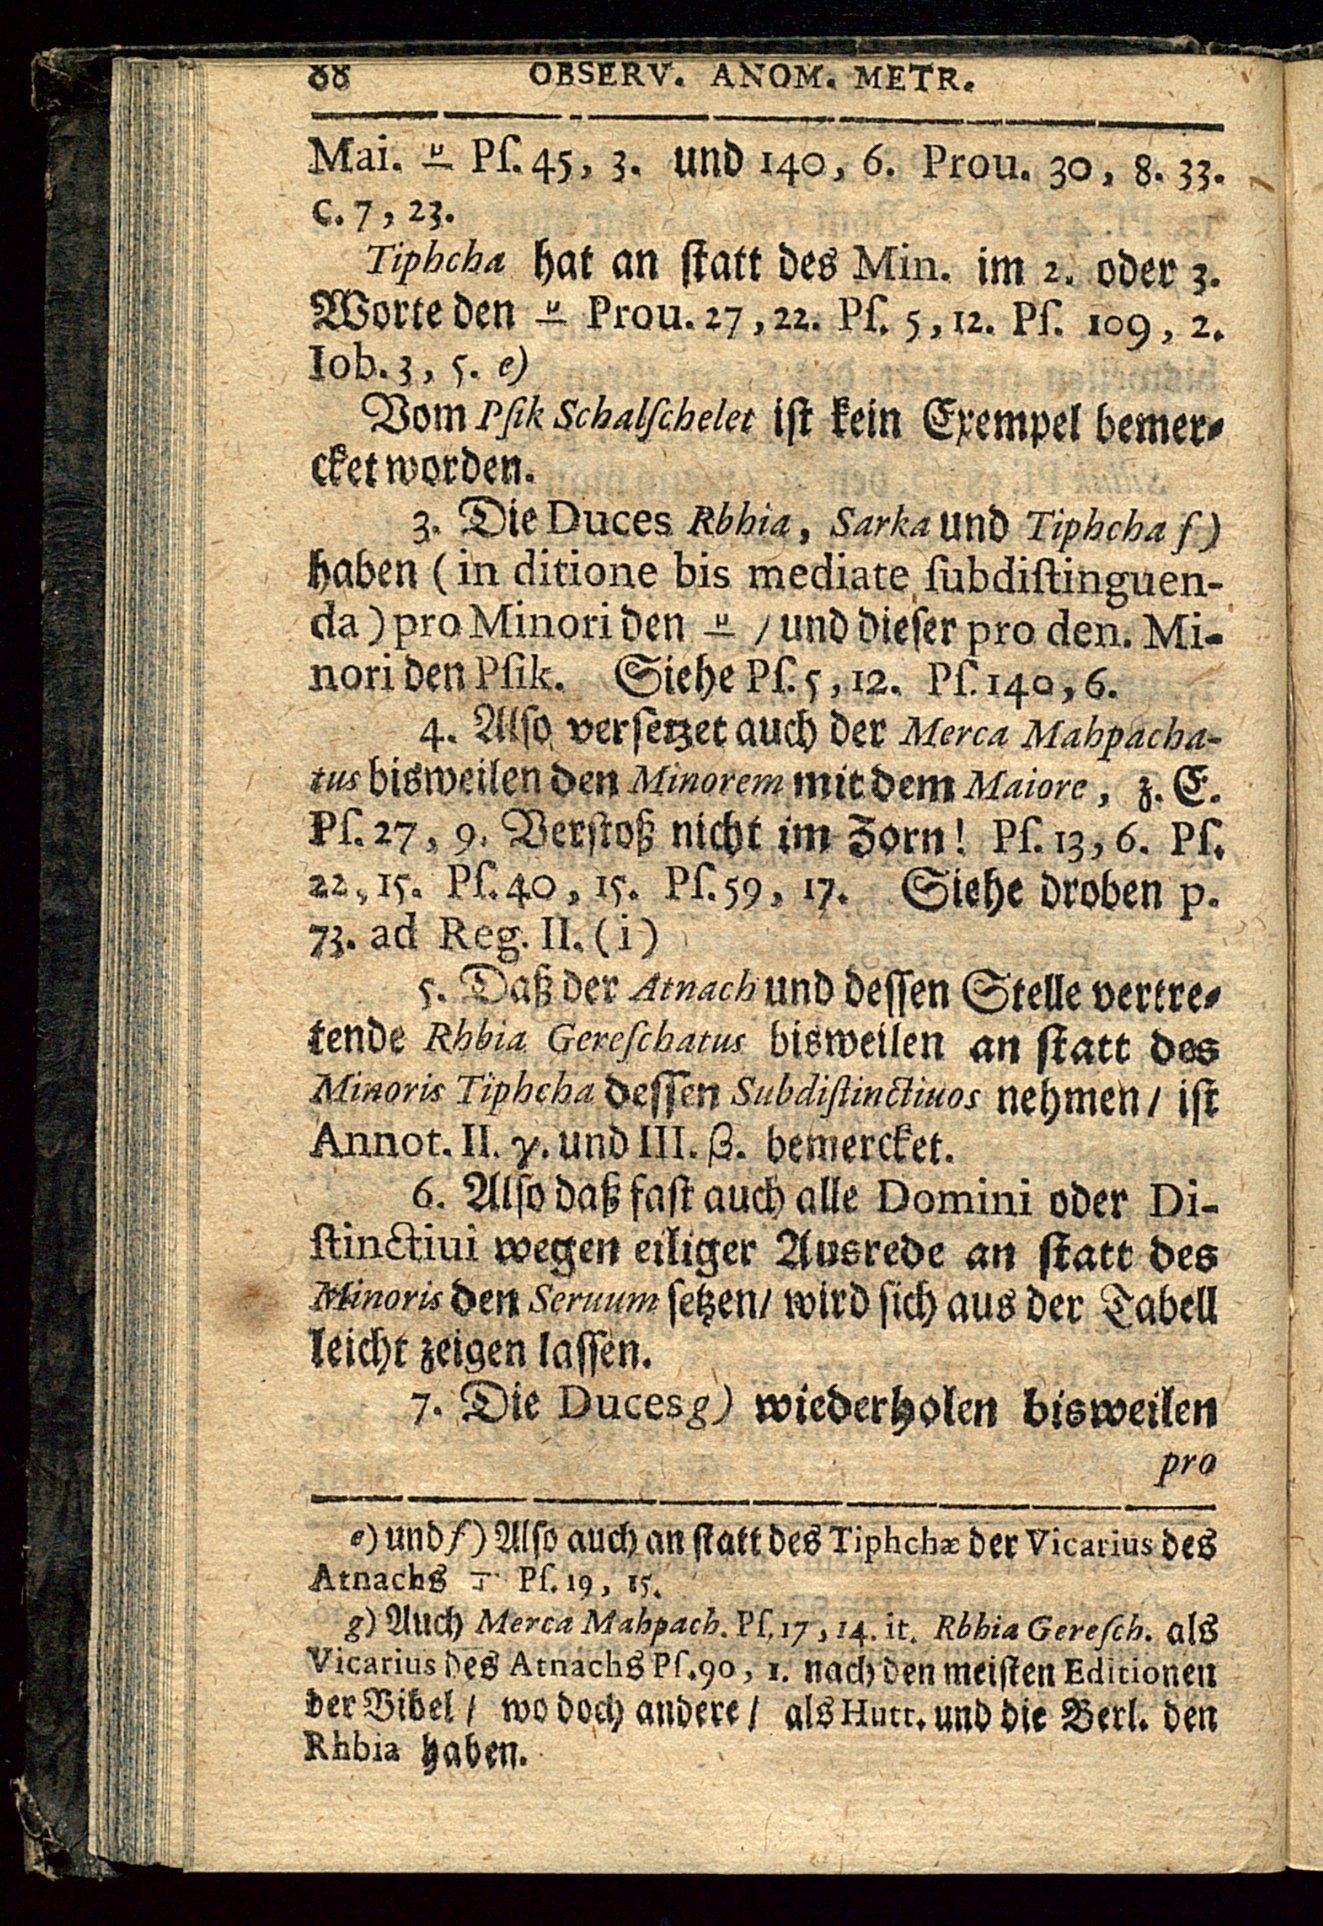 88 OBSERV. ANOM. METR.
Mai. Pſ. 45, 3. und 140, 6. Prou. 30, 8. 33.
c. 7, 23.
Tiphcha hat an ſtatt des Min. im 2. oder 3.
Worte den Prou. 27, 22. Pſ. 5, 12. Pſ. 109, 2.
Iob. 3, 5. e)
Vom Pſik Schalſchelet iſt kein Exempel bemer⸗
cket worden.
3. Die Duces Rbhia, Sarka und Tiphcha f)
haben (in ditione bis mediate ſubdiſtinguen-
da) pro Minori den / und dieſer pro den. Mi-
nori den Pſik. Siehe Pſ. 5, 12. Pſ. 140, 6.
4. Alſo verſetzet auch der Merca Mahpacha-
tus bisweilen den Minorem mit dem Maiore, z. E.
Pſ. 27, 9. Verſtoß nicht im Zorn! Pſ. 13, 6. Pſ.
22, 15. Pſ. 40, 15. Pſ. 59, 17. Siehe droben p.
73. ad Reg. II. (i)
5. Daß der Atnach und deſſen Stelle vertre⸗
tende Rhbia Gereſchatus bisweilen an ſtatt des
Minoris Tiphcha deſſen Subdiſtinctiuos nehmen / iſt
Annot. II. γ. und III. β. bemercket.
6. Alſo daß faſt auch alle Domini oder Di-
ſtinctiui wegen eiliger Ausrede an ſtatt des
Minoris den Seruum ſetzen / wird ſich aus der Tabell
leicht zeigen laſſen.
7. Die Duces g) wiederholen bisweilen
pro
e) und f) Alſo auch an ſtatt des Tiphchæ der Vicarius des
Atnachs Pſ. 19, 15.
g) Auch Merca Mahpach. Pſ. 17, 14. it. Rbhia Gereſch. als
Vicarius des Atnachs Pſ. 90, 1. nach den meiſten Editionen
der Bibel / wo doch andere / als Hutt. und die Berl. den
Rhbia haben.